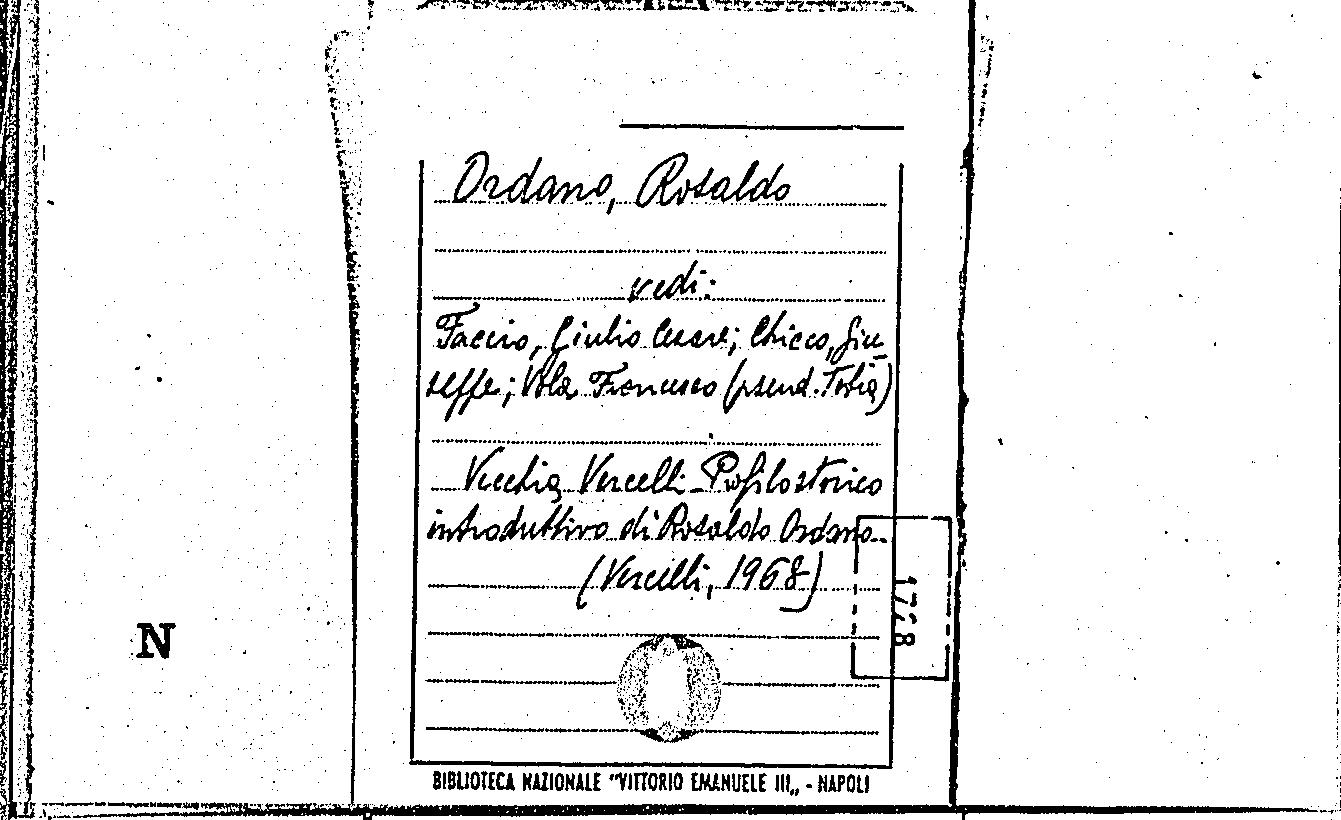 Ordano, Rosaldo
vedi:
Faccio, Giulio Cesare; Chicco, Giu-
seppe; Vola Francesco (pseud. Tobia)
Vecchia Vercelli. Profilo storico
introduttivo di Rosaldo Ordano.
(Vercelli, 1968)
N
BIBLIOTECA NAZIONALE "VITTORIO EMANUELE III„ - NAPOLI